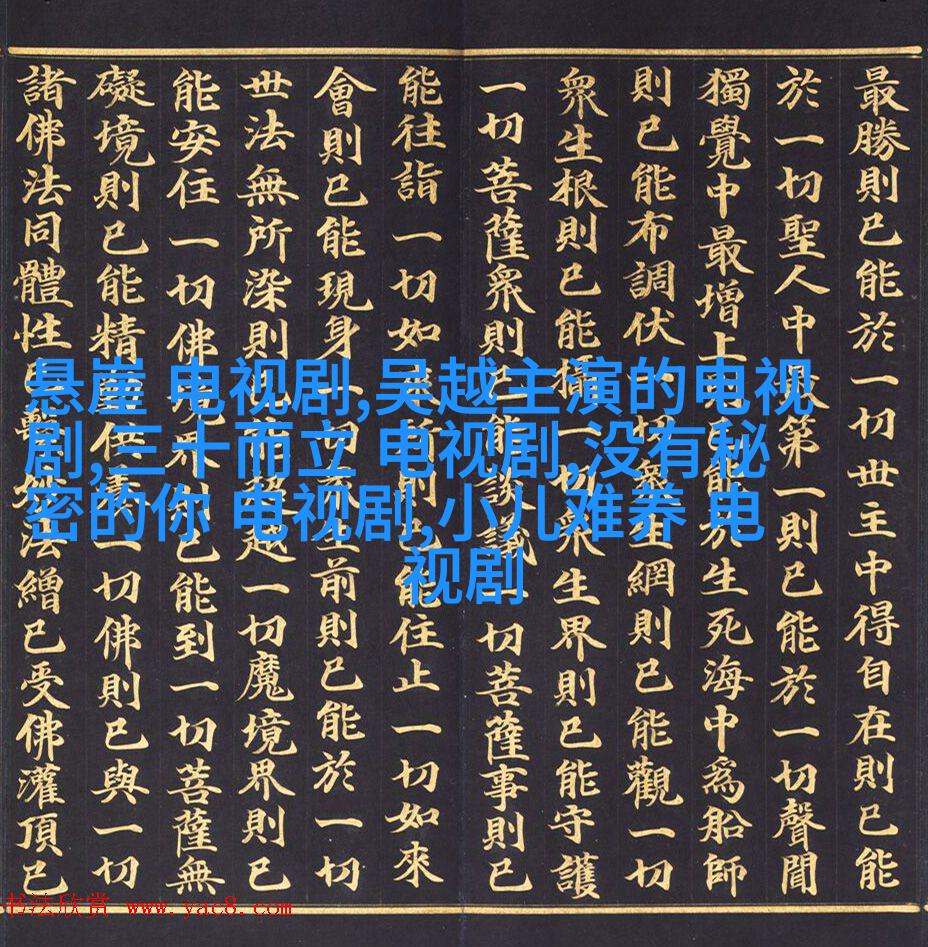 最勝則已能於一切世主中得自在則已能
於一切聖人中最第一則已能於一切聲聞
獨覺中最增上則已能於生死海中爲船師
則已能布調伏一切衆生網則已能觀一切
衆生根則已能攝一切衆生界則已能守護
一切菩薩衆則已能談議一切菩薩事則已
能往詣一切如來所則已能住止一切如來
會則已能現身一切衆生前則已能於一切
世法無所染則已能超越一切魔境界則已
能安住一切佛境界則已能到一切菩薩無
礙境則已能精勤供養一切佛則已與一切
諸佛法同體性已繫妙法繒已受佛灌頂已
悬崖 电视剧,吴越主演的电视
剧,三十而立 电视剧,没有秘
密的你 电视剧,小儿难养 电
视剧
书法欣赏 www.yac8.com